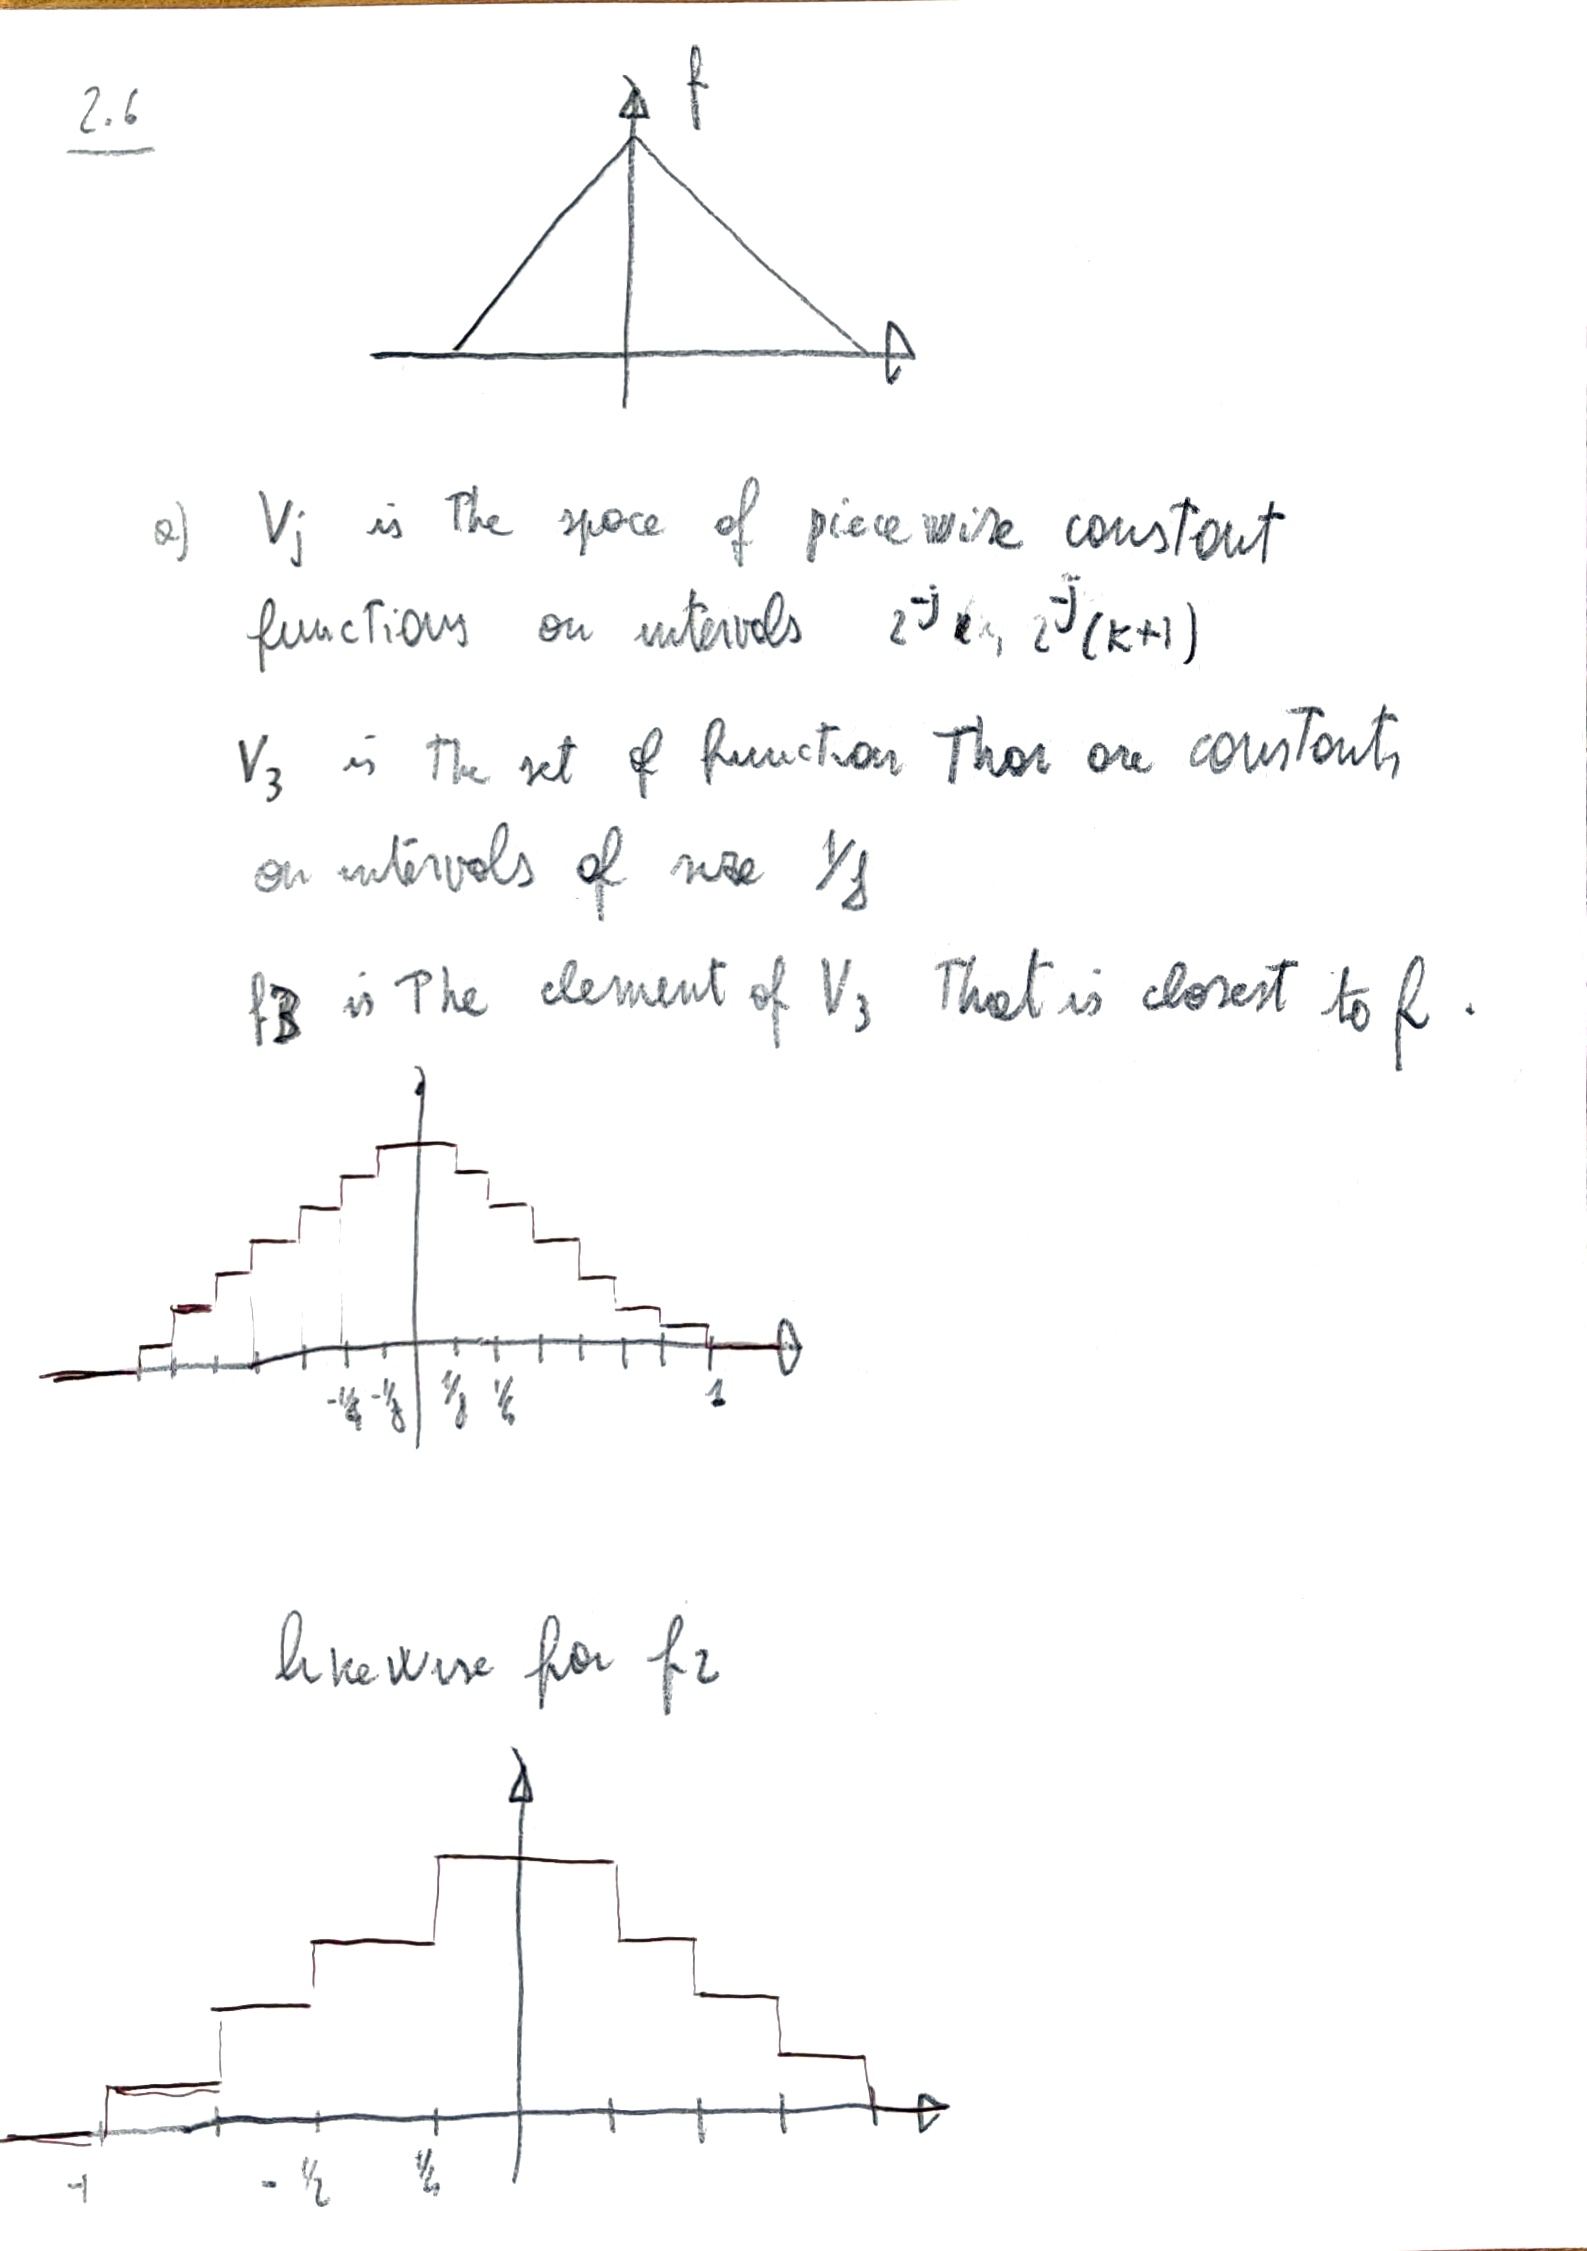 2.6
f
a) Vj is the space of piecewise constant
functions on intervals 2^-j k, 2^-j (k+1)
V3 is the set of function that are constants
on intervals of size 1/8
f3 is The element of V3 That is closest to f.
-1/4 -1/8 1/8 1/4 1
likewise for f2
-1 -1/2 1/4